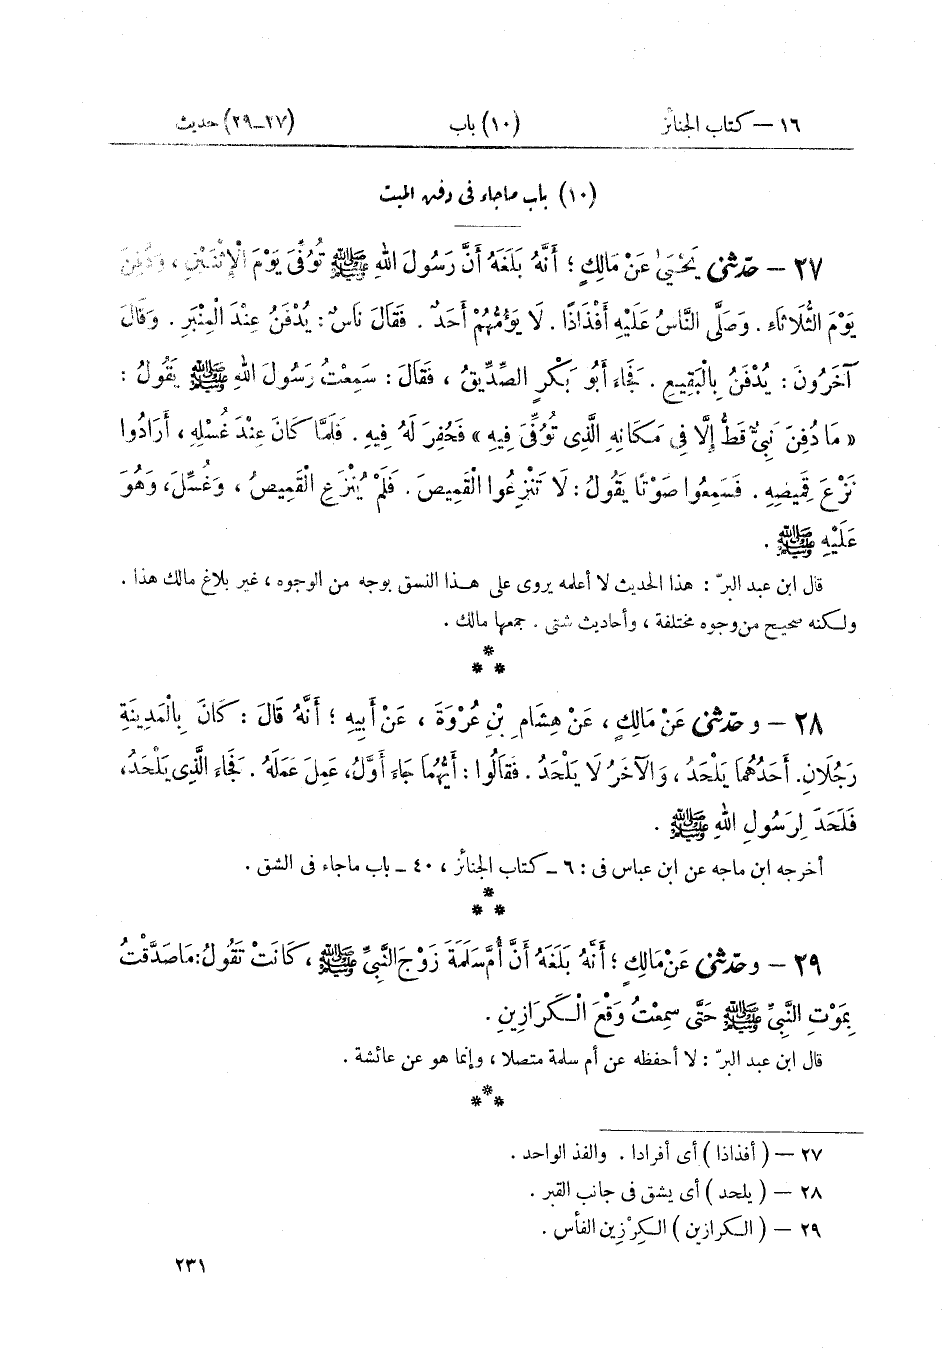 ١٦ — كتاب الجنائز (١٠) باب (٢٧–٢٩) حديث
(١٠) باب ماجاء فى دفن الميت
٢٧ – حدّثنى يَحْيَىٰ عَنْ مَالِكٍ ؛ أَنَّهُ بَلَغَهُ أَنَّ رَسُولَ اللهِ ﷺ تُوُفِّىَ يَوْمَ الْإِثْنَيْنِ ، وَدُفِنَ
يَوْمَ الثُّلَاثَاءِ . وَصَلَّى النَّاسُ عَلَيْهِ أَفْذَاذًا . لَا يَؤُمُّهُمْ أَحَدٌ . فَقَالَ نَاسٌ : يُدْفَنُ عِنْدَ الْمِنْبَرِ . وَقَالَ
آخَرُونَ : يُدْفَنُ بِالْبَقِيعِ . فَجَاءَ أَبُو بَكْرٍ الصِّدِّيقُ ، فَقَالَ : سَمِعْتُ رَسُولَ اللهِ ﷺ يَقُولُ :
« مَا دُفِنَ نَبِىٌّ قَطُّ إِلَّا فِى مَكَانِهِ الَّذِى تُوُفِّىَ فِيهِ » فَحُفِرَ لَهُ فِيهِ . فَلَمَّا كَانَ عِنْدَ غُسْلِهِ ، أَرَادُوا
نَزْعَ قَمِيصِهِ . فَسَمِعُوا صَوْتًا يَقُولُ : لَا تَنْزِعُوا الْقَمِيصَ . فَلَمْ يُنْزَعِ الْقَمِيصُ ، وَغُسِّلَ، وَهُوَ
عَلَيْهِ ﷺ .
قال ابن عبد البرّ : هذا الحديث لا أعلمه يروى على هـذا النسق بوجه من الوجوه ، غير بلاغ مالك هذا .
ولـكنه صحيح من وجوه مختلفة ، وأحاديث شتى . جمعها مالك .
*
* *
٢٨ – و حدّثنى عَنْ مَالِكٍ ، عَنْ هِشَامِ بْنِ عُرْوَةَ ، عَنْ أَبِيهِ ؛ أَنَّهُ قَالَ : كَانَ بِالْمَدِينَةِ
رَجُلَانِ. أَحَدُهُمَا يَلْحَدُ ، وَالْآخَرُ لَا يَلْحَدُ . فَقَالُوا : أَيُّهُمَا جَاءَ أَوَّلُ، عَمِلَ عَمَلَهُ . فَجَاءَ الَّذِى يَلْحَدُ،
فَلَحَدَ لِرَسُولِ اللهِ ﷺ .
أخرجه ابن ماجه عن ابن عباس فى : ٦ – كتاب الجنائز ، ٤٠ – باب ماجاء فى الشق .
*
* *
٢٩ – و حدّثنى عَنْ مَالِكٍ ؛ أَنَّهُ بَلَغَهُ أَنَّ أُمَّ سَلَمَةَ زَوْجَ النَّبِىِّ ﷺ ، كَانَتْ تَقُولُ : مَا صَدَّقْتُ
بِمَوْتِ النَّبِىِّ ﷺ حَتَّى سَمِعْتُ وَقْعَ الْـكَرَازِينِ .
قال ابن عبد البرّ : لا أحفظه عن أم سلمة متصلا ، وإنما هو عن عائشة .
*
* *
٢٧ — ( أفذاذا ) أى أفرادا . والفذ الواحد .
٢٨ — ( يلحد ) أى يشق فى جانب القبر .
٢٩ — ( الـكرازين ) الـكِرْزِين الفأس .
٢٣١